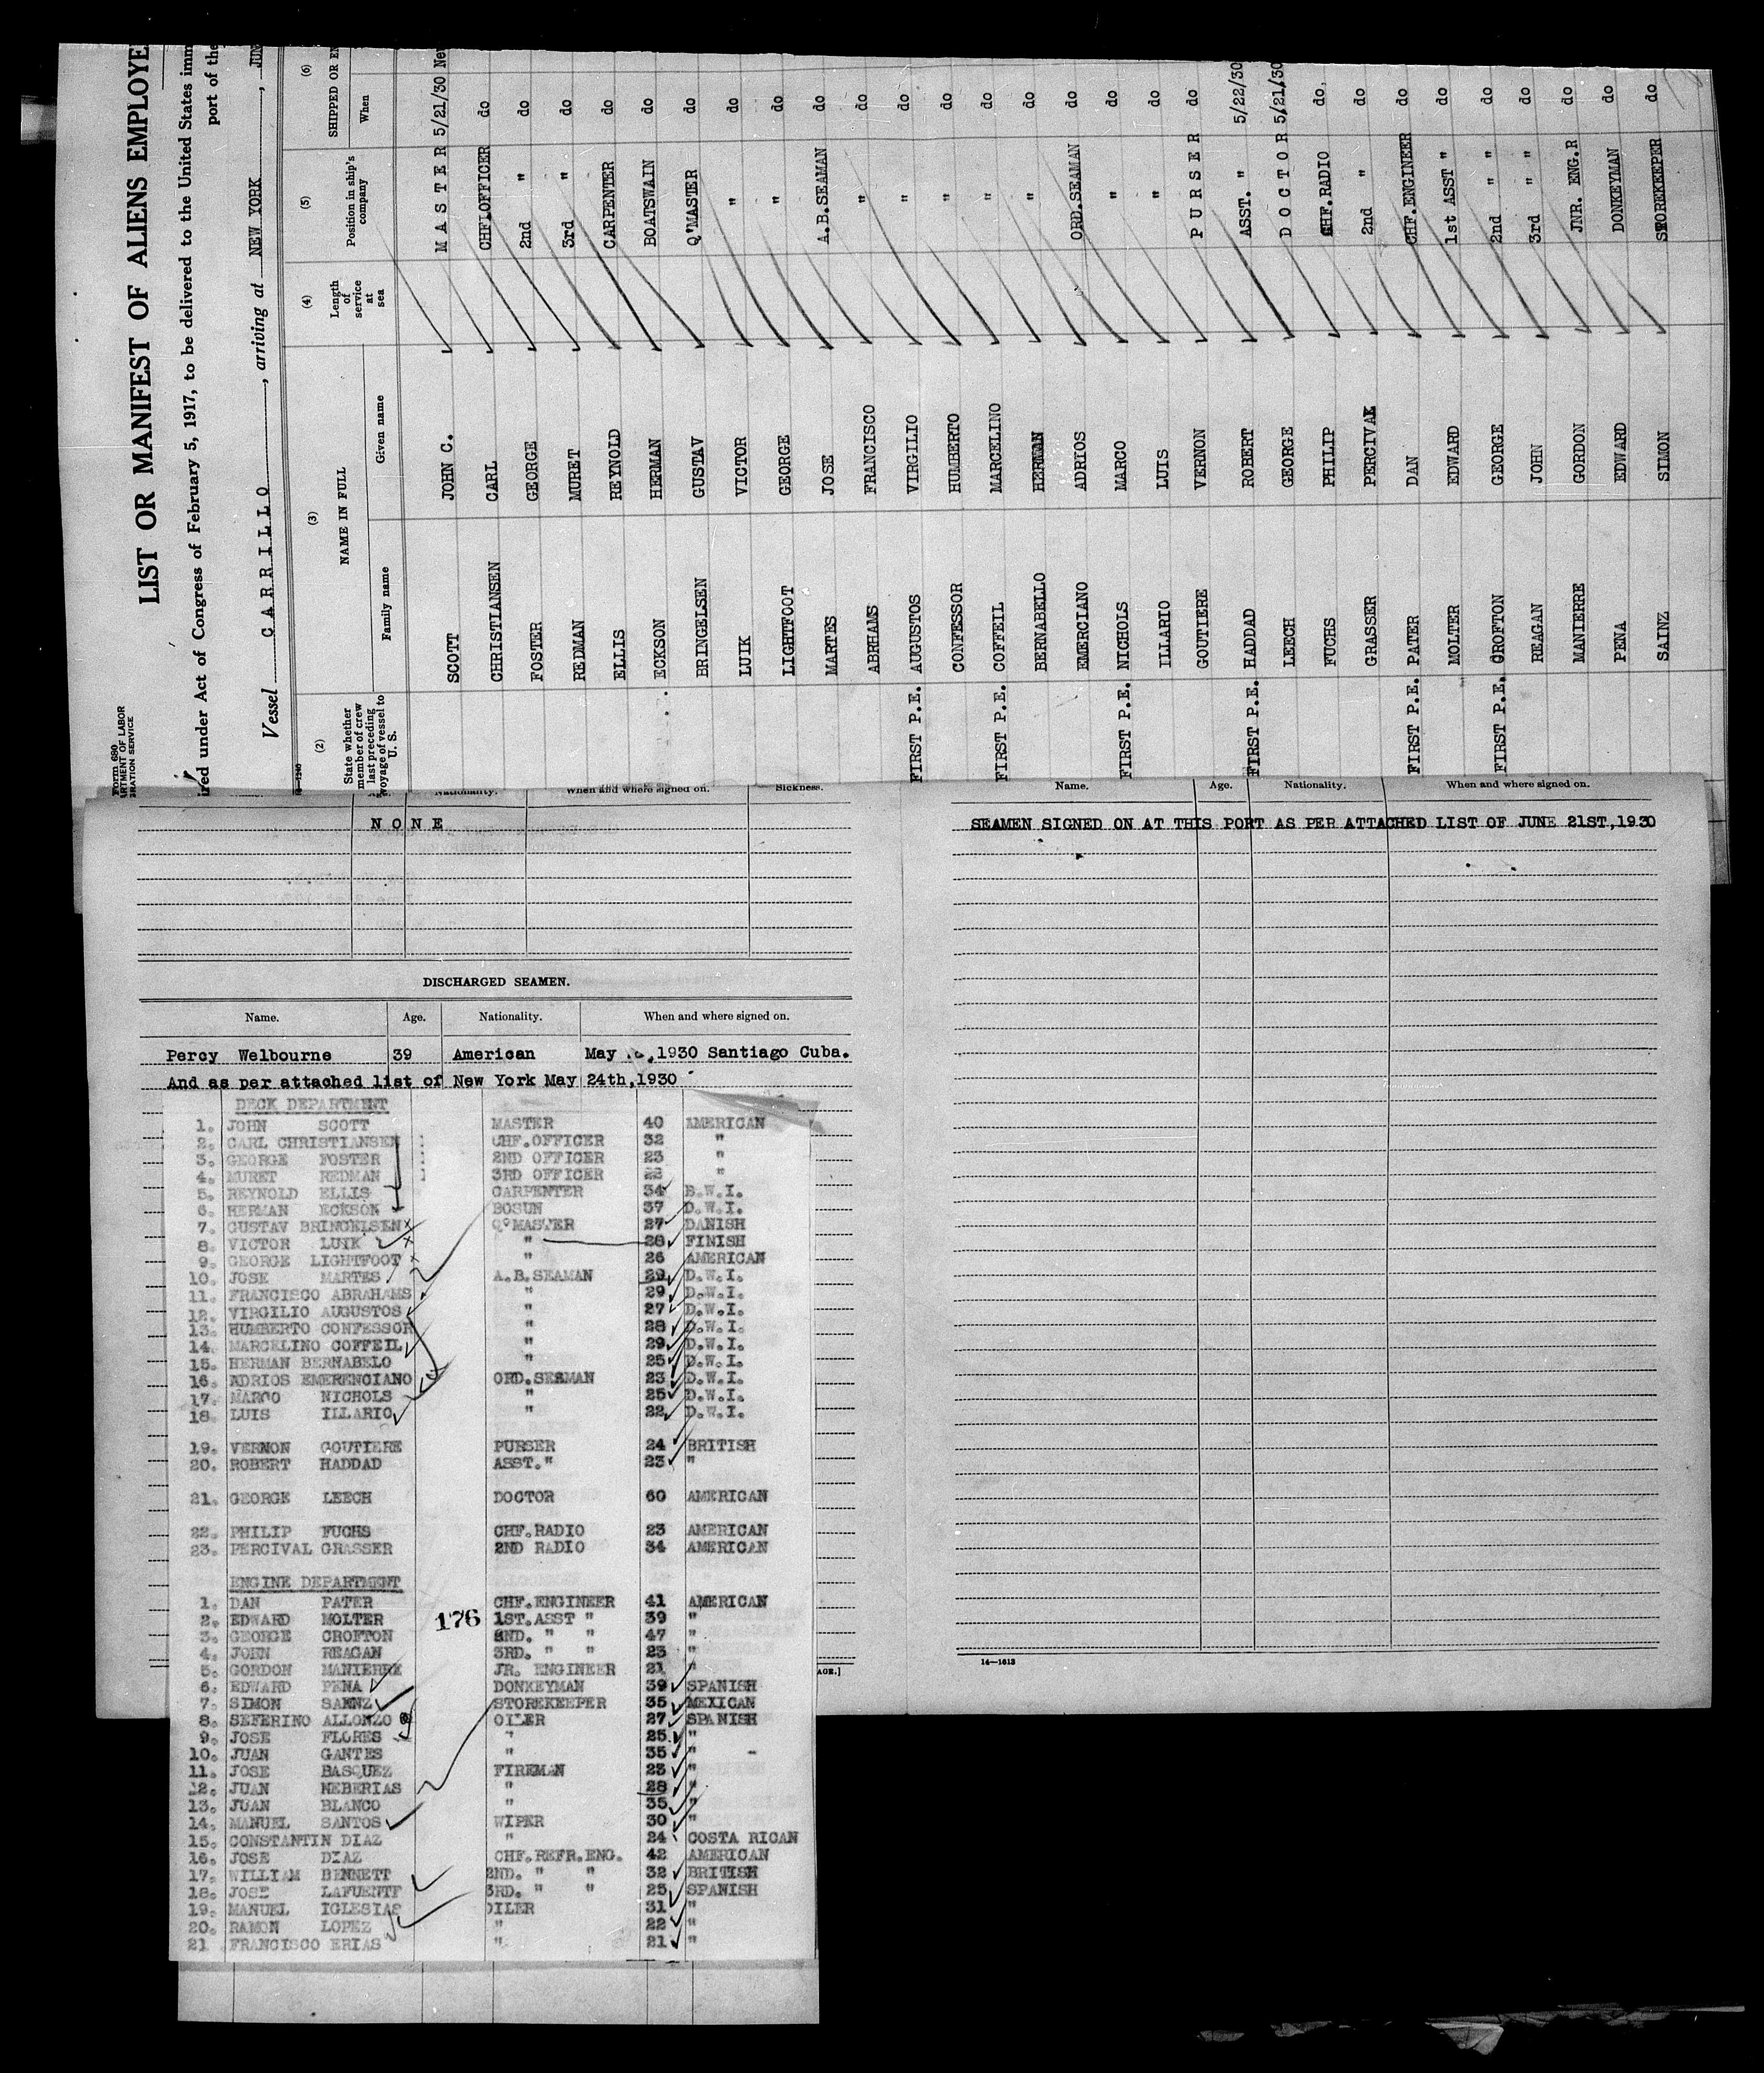 Form 680
LIST OR MANIFEST OF ALIENS EMPLOYE
ARTMENT OF LABOR
GRATION SERVICE
red under Act of Congress of February 5, 1917, to be delivered to the United States imm
port of the
Vessel CARRILLO, arriving at NEW YORK, JUN
(2) (3) (4) (5) (6)
State whether member of crew last preceding voyage of vessel to U. S.
NAME IN FULL
Family name Given name
Length of service at sea
Position in ship's company
SHIPPED OR EN
When
SCOTT JOHN C. MASTER 5/21/30 New
CHRISTIANSEN CARL CHF.OFFICER do
FOSTER GEORGE 2nd " do
REDMAN MURET 3rd " do
ELLIS REYNOLD CARPENTER do
ECKSON HERMAN BOATSWAIN do
BRINGELSEN GUSTAV Q'MASTER do
LUIK VICTOR " do
LIGHTFOOT GEORGE " do
MARTES JOSE A.B.SEAMAN do
ABRHAMS FRANCISCO " do
FIRST P.E. AUGUSTOS VIRGILIO " do
CONFESSOR HUMBERTO " do
FIRST P.E. COFFEIL MARCELINO " do
BERNABELLO HERMAN " do
EMERCIANO ADRIOS ORD.SEAMAN do
FIRST P.E. NICHOLS MARCO " do
ILLARIO LUIS " do
GOUTIERE VERNON PURSER do
FIRST P.E. HADDAD ROBERT ASST. " 5/22/30
LEECH GEORGE DOCTOR 5/21/30
FUCHS PHILIP CHF.RADIO do.
GRASSER PERCIVAL 2nd " do
FIRST P.E. PATER DAN CHF.ENGINEER do
MOLTER EDWARD 1st ASST " do
FIRST P.E. CROFTON GEORGE 2nd " " do
REAGAN JOHN 3rd " " do
MANIERRE GORDON JNR. ENG.R do
PENA EDWARD DONKEYMAN do
SAINZ SIMON STOREKEEPER do
Nationality. When and where signed on. Sickness.
NONE
DISCHARGED SEAMEN.
Name. Age. Nationality. When and where signed on.
Percy Welbourne 39 American May ,1930 Santiago Cuba.
And as per attached list of New York May 24th,1930
DECK DEPARTMENT
1. JOHN SCOTT MASTER 40 AMERICAN
2. CARL CHRISTIANSEN CHF.OFFICER 32 "
3. GEORGE FOSTER 2ND OFFICER 23 "
4. MURET REDMAN 3RD OFFICER "
5. REYNOLD ELLIS CARPENTER 34 B.W.I.
6. HERMAN ECKSON BOSUN 37 D.W.I.
7. GUSTAV BRINGELSEN Q'MASTER 27 DANISH
8. VICTOR LUIK " 28 FINISH
9. GEORGE LIGHTFOOT " 26 AMERICAN
10. JOSE MARTES A.B.SEAMAN 29 D.W.I.
11. FRANCISCO ABRAHAMS " 29 D.W.I.
12. VIRGILIO AUGUSTOS " 27 D.W.I.
13. HUMBERTO CONFESSOR " 28 D.W.I.
14. MARCELINO COFFEIL " 29 D.W.I.
15. HERMAN BERNABELO " 25 D.W.I.
16. ADRIOS EMERENCIANO ORD.SEAMAN 23 D.W.I.
17. MARCO NICHOLS " 25 D.W.I.
18. LUIS ILLARIO " 22 D.W.I.
19. VERNON GOUTIERE PURSER 24 BRITISH
20. ROBERT HADDAD ASST." 23 "
21. GEORGE LEECH DOCTOR 60 AMERICAN
22. PHILIP FUCHS CHF.RADIO 23 AMERICAN
23. PERCIVAL GRASSER 2ND RADIO 34 AMERICAN
ENGINE DEPARTMENT
1. DAN PATER CHF.ENGINEER 41 AMERICAN
2. EDWARD MOLTER 176 1ST.ASST " 39 "
3. GEORGE CROFTON 2ND. " " 47 "
4. JOHN REAGAN 3RD. " " 23 "
5. GORDON MANIERRE JR. ENGINEER 21 "
6. EDWARD PENA DONKEYMAN 39 SPANISH
7. SIMON SAENZ STOREKEEPER 35 MEXICAN
8. SEFERINO ALLONZO OILER 27 SPANISH
9. JOSE FLORES " 25 "
10. JUAN GANTES " 35 "
11. JOSE BASQUEZ FIREMAN 23 "
12. JUAN NEBERIAS " 28 "
13. JUAN BLANCO " 35 "
14. MANUEL SANTOS WIPER 30 "
15. CONSTANTIN DIAZ " 24 COSTA RICAN
16. JOSE DIAZ CHF.REFR.ENG. 42 AMERICAN
17. WILLIAM BENNETT 2ND. " " 32 BRITISH
18. JOSE LAFUENTE 3RD. " " 25 SPANISH
19. MANUEL IGLESIAS OILER 31 "
20. RAMON LOPEZ " 22 "
21 FRANCISCO ERIAS " 21 "
AGE.]
Name. Age. Nationality. When and where signed on.
SEAMEN SIGNED ON AT THIS PORT AS PER ATTACHED LIST OF JUNE 21ST,1930
14—1613